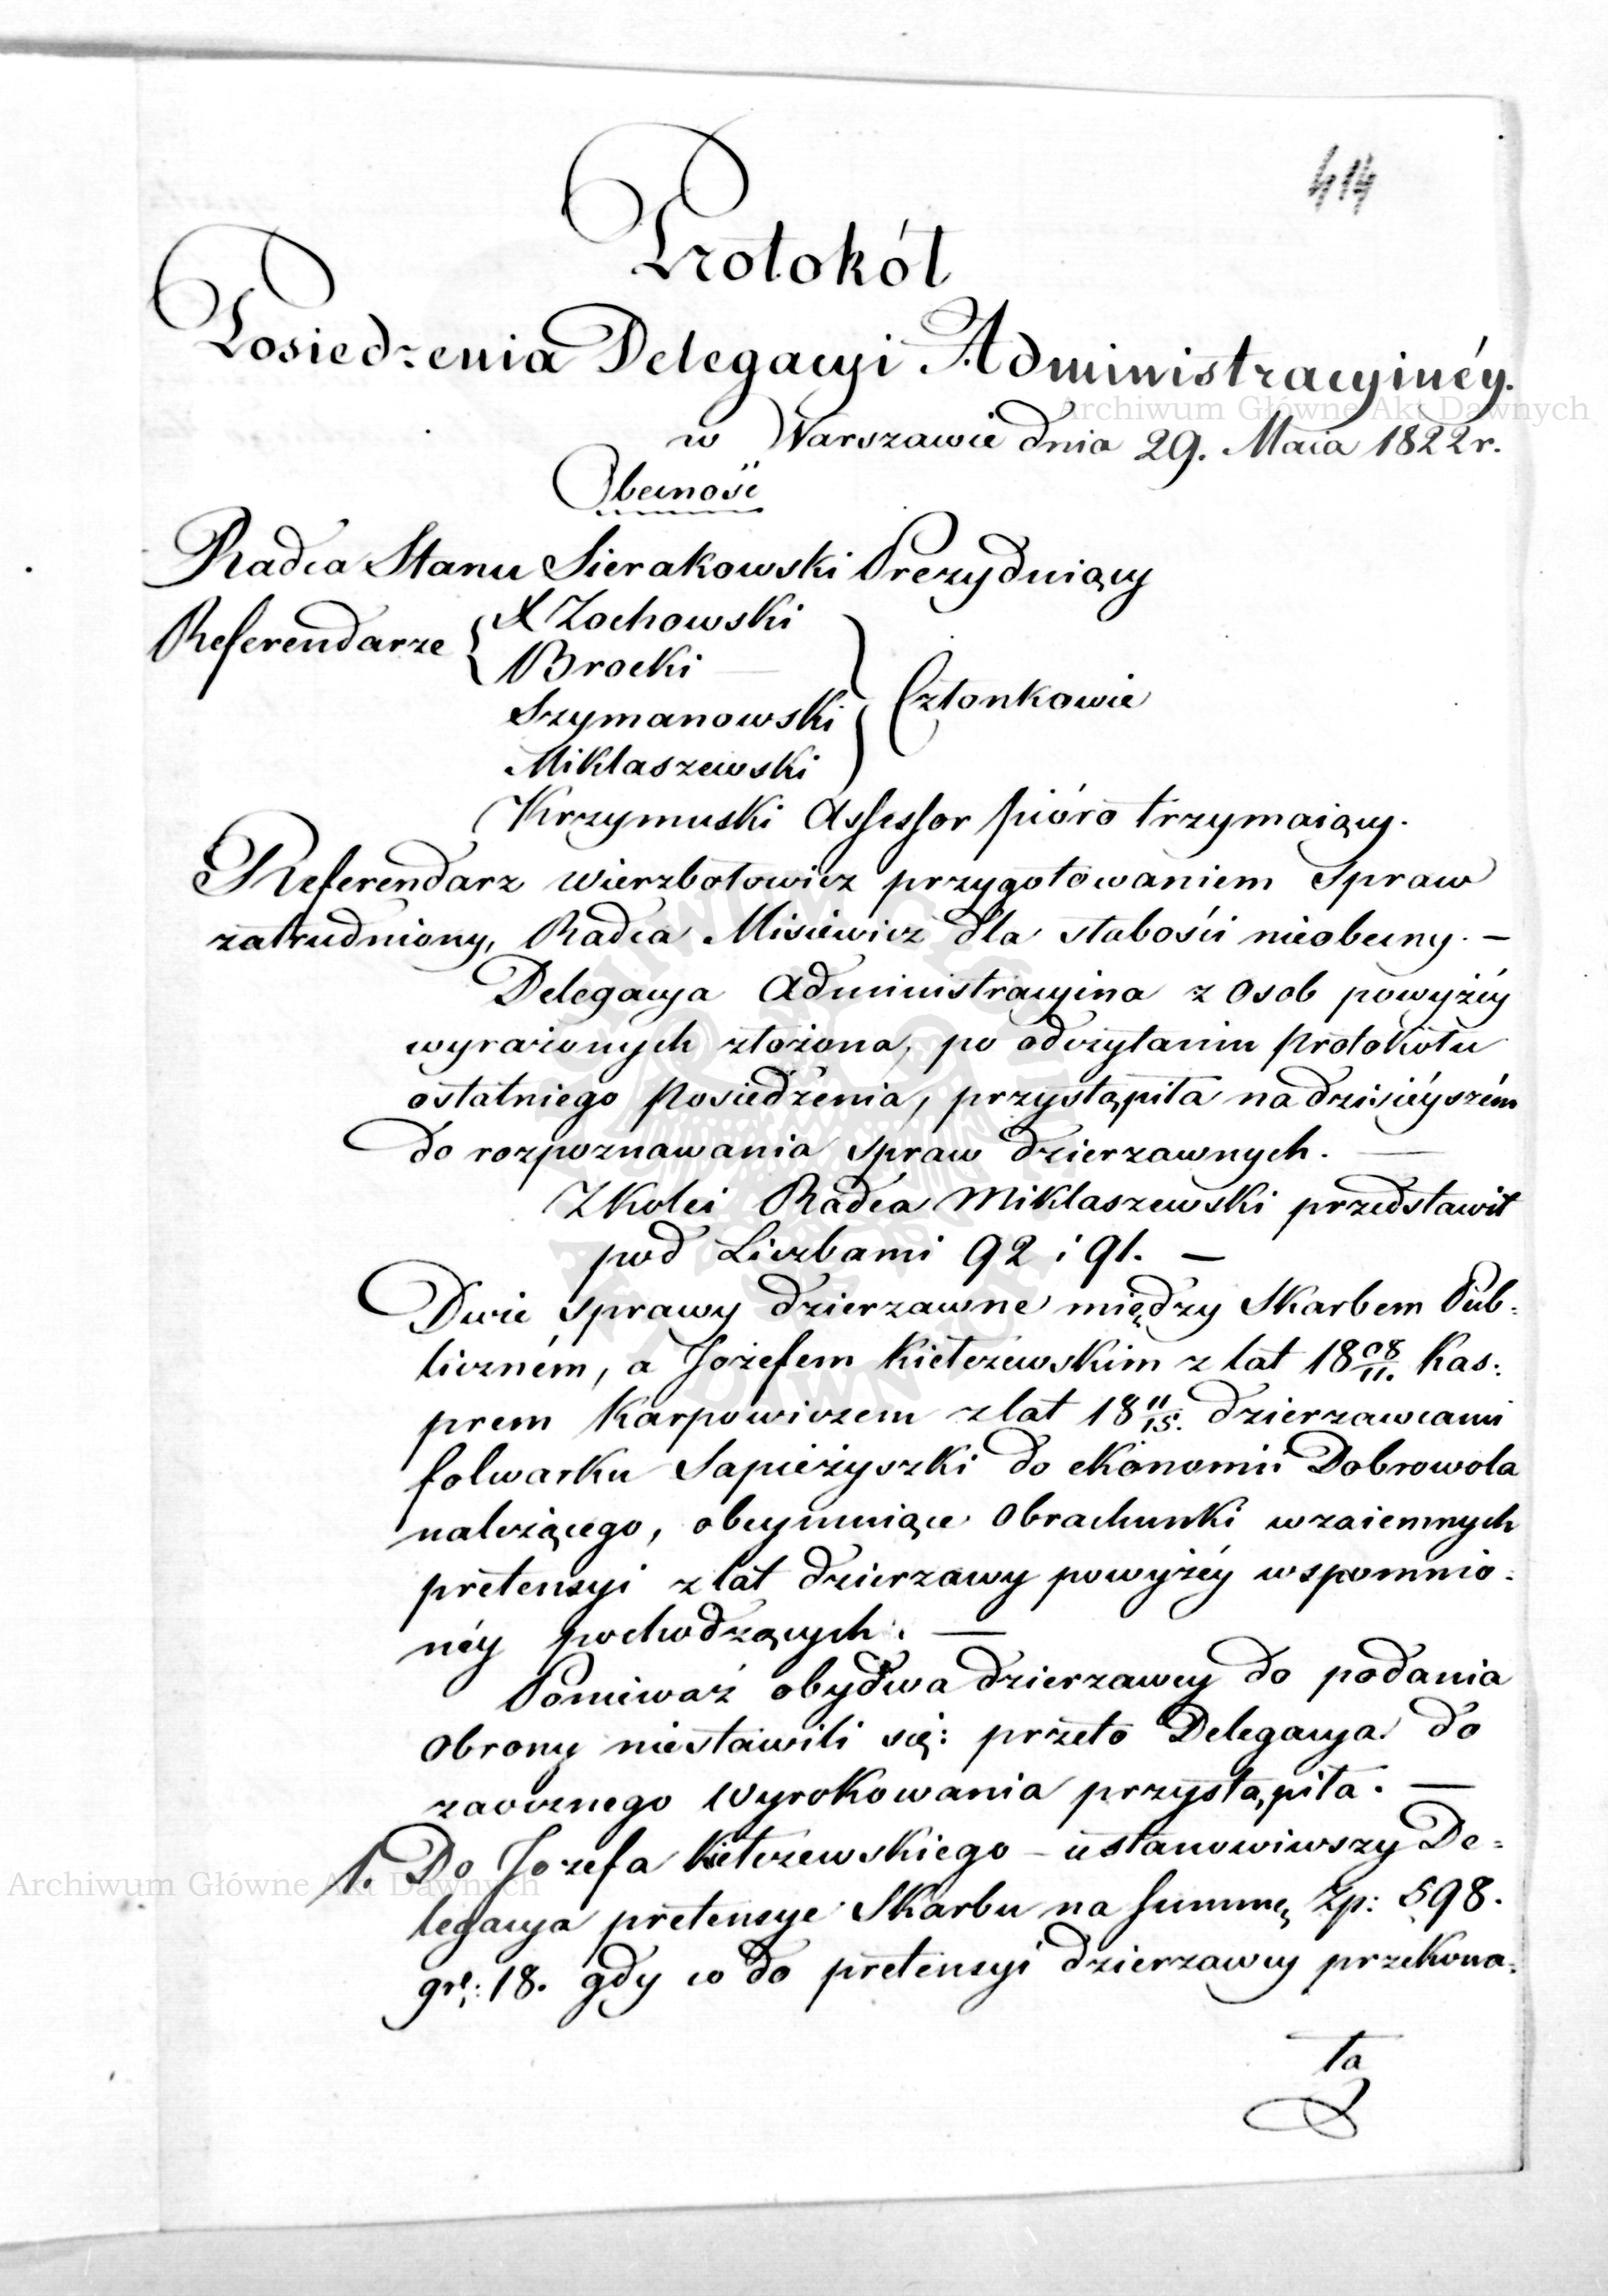 414
Protokół
Posiedzenia Delegacyi Administracyinéy.
w Warszawie dnia 29. Maia 1822 r.
Obecność
Radca Stanu Sierakowski Prezyduiący
Referendarze { X Zochowski
Brocki
Szymanowski } Członkowie
Miklaszewski
Krzymuski Assessor pióro trzymaiący.
Referendarz Wierzbołowicz przygotowaniem Spraw
zatrudniony, Radca Misiewicz dla słabości nieobecny. —
Delegacya Administracyina z Osob powyżéy
wyrażonych złożona, po odczytaniu Protokółu
ostatniego Posiedzenia, przystąpiła na dzisiéyszém
do rozpoznawania Spraw dzierzawnych. —
Z Kolei Radca Miklaszewski przedstawił
pod Liczbami 92 i 91. —
Dwie sprawy dzierzawne między Skarbem Pub=
liczném, a Jozefem Kiełczewskim z lat 18 08/11. Kas=
prem Karpowiczem z lat 18 11/15. dzierzawcami
folwarku Sapieżyszki do ekonomii Dobrowola
należącego, obeymuiące Obrachunki wzaiemnych
pretensyi z lat dzierzawy powyżéy wspomnio=
néy pochodzących. —
Ponieważ obydwa dzierzawcy do podania
Obrony niestawili się: przeto Delegacya do
zaocznego Wyrokowania przystąpiła. —
1. Do Jozefa Kiełczewskiego – ustanowiwszy De=
legacya pretensye Skarbu na Summę Zp: 598.
gr: 18. gdy co do pretensyi dzierzawcy przekona=
ła
Archiwum Główne Akt Dawnych
Archiwum Główne Akt Dawnych